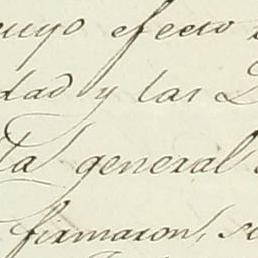 cuyo efecto
dad y las
ta general
firmaron, se